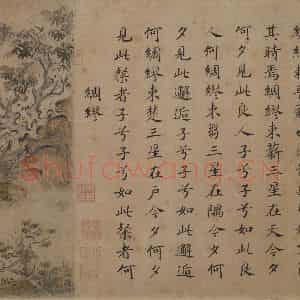 其時焉綢繆束薪三星在天今夕
何夕見此良人子兮子兮如此良
人何綢繆束芻三星在隅今夕何
夕見此邂逅子兮子兮如此邂逅
何綢繆束楚三星在戶今夕何夕
見此粲者子兮子兮如此粲者何
綢繆